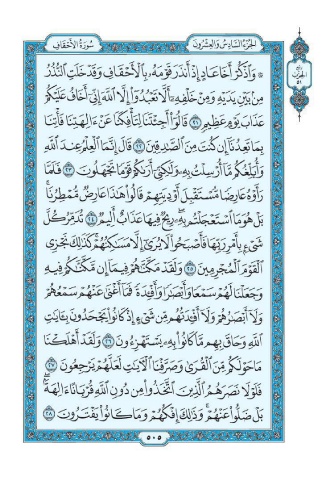 الجزء السادس والعشرون
سورة الأحقاف
۞ وَاذْكُرْ أَخَا عَادٍ إِذْ أَنذَرَ قَوْمَهُ بِالْأَحْقَافِ وَقَدْ خَلَتِ النُّذُرُ
مِن بَيْنِ يَدَيْهِ وَمِنْ خَلْفِهِ أَلَّا تَعْبُدُوا إِلَّا اللَّهَ إِنِّي أَخَافُ عَلَيْكُمْ
عَذَابَ يَوْمٍ عَظِيمٍ ٢١ قَالُوا أَجِئْتَنَا لِتَأْفِكَنَا عَنْ ءَالِهَتِنَا فَأْتِنَا
بِمَا تَعِدُنَا إِن كُنتَ مِنَ الصَّادِقِينَ ٢٢ قَالَ إِنَّمَا الْعِلْمُ عِندَ اللَّهِ
وَأُبَلِّغُكُم مَّا أُرْسِلْتُ بِهِ وَلَٰكِنِّي أَرَىٰكُمْ قَوْمًا تَجْهَلُونَ ٢٣ فَلَمَّا
رَأَوْهُ عَارِضًا مُّسْتَقْبِلَ أَوْدِيَتِهِمْ قَالُوا هَٰذَا عَارِضٌ مُّمْطِرُنَا
بَلْ هُوَ مَا اسْتَعْجَلْتُم بِهِ رِيحٌ فِيهَا عَذَابٌ أَلِيمٌ ٢٤ تُدَمِّرُ كُلَّ
شَيْءٍ بِأَمْرِ رَبِّهَا فَأَصْبَحُوا لَا يُرَىٰ إِلَّا مَسَٰكِنُهُمْ كَذَٰلِكَ نَجْزِي
الْقَوْمَ الْمُجْرِمِينَ ٢٥ وَلَقَدْ مَكَّنَّٰهُمْ فِيمَا إِن مَّكَّنَّٰكُمْ فِيهِ
وَجَعَلْنَا لَهُمْ سَمْعًا وَأَبْصَٰرًا وَأَفْـِٔدَةً فَمَا أَغْنَىٰ عَنْهُمْ سَمْعُهُمْ
وَلَا أَبْصَٰرُهُمْ وَلَا أَفْـِٔدَتُهُم مِّن شَيْءٍ إِذْ كَانُوا يَجْحَدُونَ بِـَٔايَٰتِ
اللَّهِ وَحَاقَ بِهِم مَّا كَانُوا بِهِ يَسْتَهْزِءُونَ ٢٦ وَلَقَدْ أَهْلَكْنَا
مَا حَوْلَكُم مِّنَ الْقُرَىٰ وَصَرَّفْنَا الْءَايَٰتِ لَعَلَّهُمْ يَرْجِعُونَ ٢٧
فَلَوْلَا نَصَرَهُمُ الَّذِينَ اتَّخَذُوا مِن دُونِ اللَّهِ قُرْبَانًا ءَالِهَةً
بَلْ ضَلُّوا عَنْهُمْ وَذَٰلِكَ إِفْكُهُمْ وَمَا كَانُوا يَفْتَرُونَ ٢٨
٥٠٥